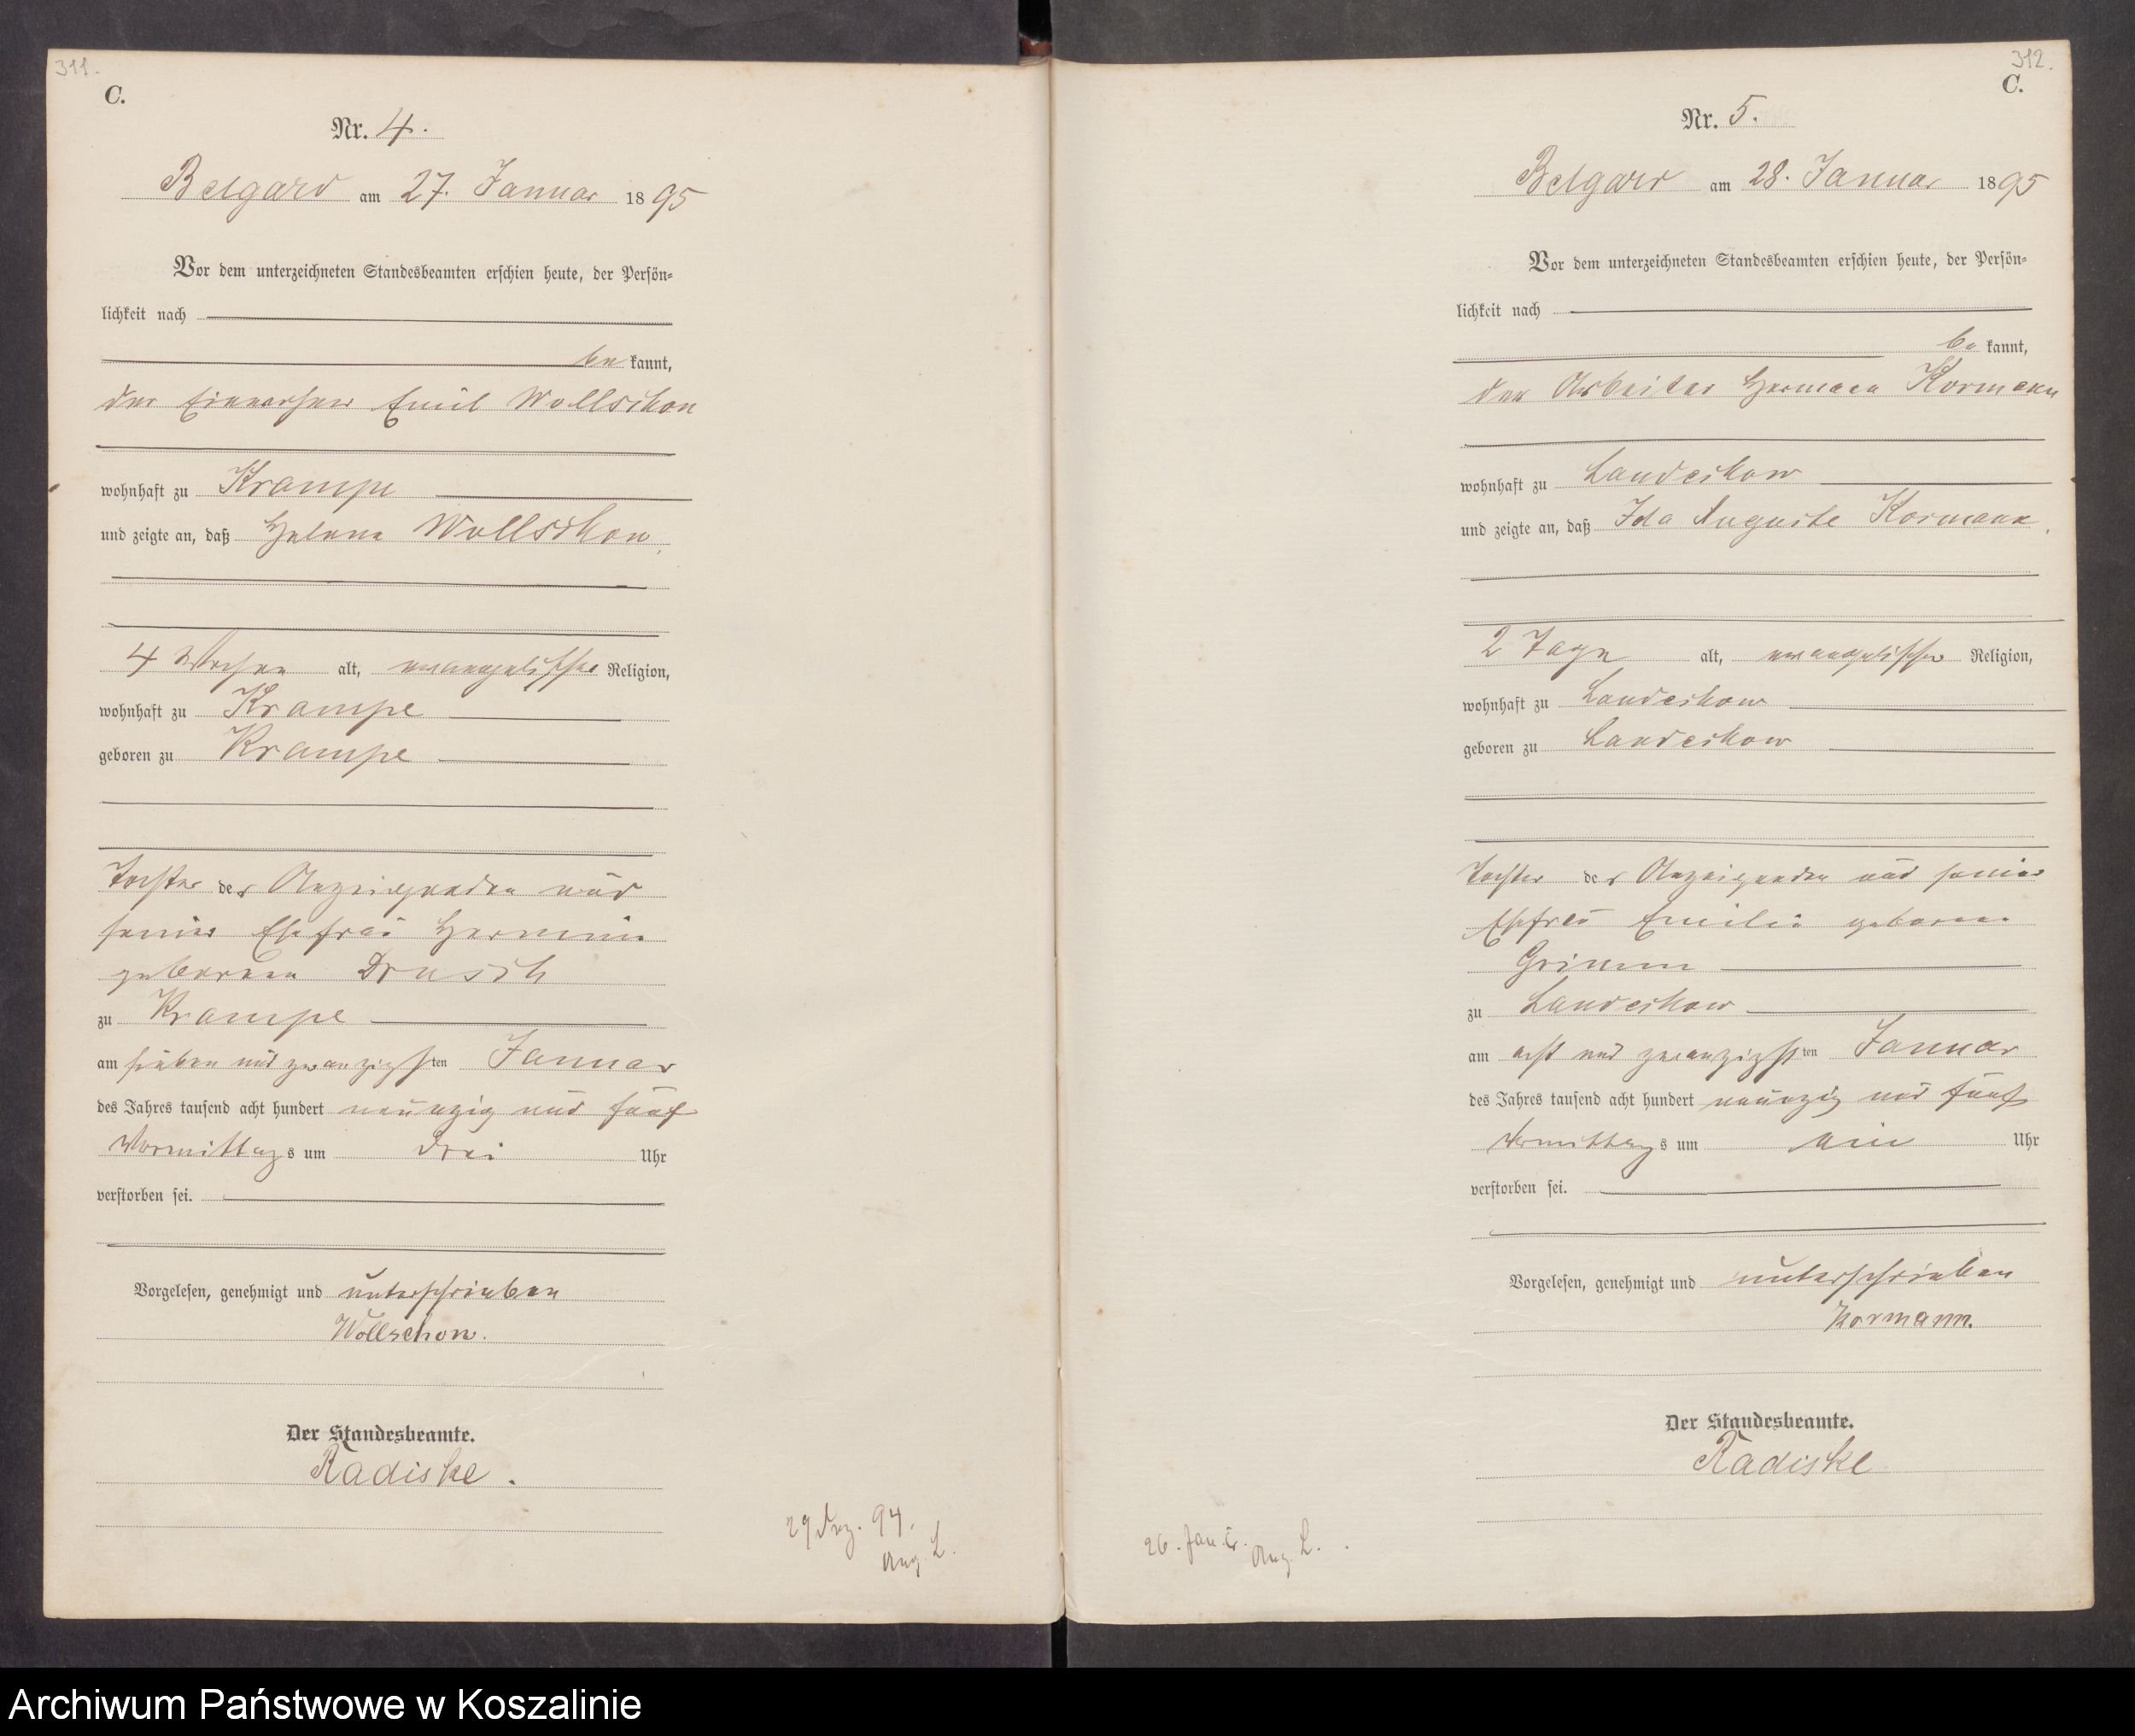 311.
C.
Nr. 4.
Belgard am 27. Januar 1895
Vor dem unterzeichneten Standesbeamten erschien heute, der Persön-
lichkeit nach
bekannt,
der Einwohner Emil Wollschon
wohnhaft zu Krampe
und zeigte an, daß Helene Wollschon,
4 Wochen alt, evangelischer Religion,
wohnhaft zu Krampe
geboren zu Krampe
Tochter des Anzeigenden und
seiner Ehefrau Hermine
geborenen Drusch
zu Krampe
am sieben und zwanzigsten Januar
des Jahres tausend acht hundert neunzig und fünf
Vormittags um drei Uhr
verstorben sei.
Vorgelesen, genehmigt und unterschrieben
Wollschon.
Der Standesbeamte.
Radiske.
29 Dez. 94.
Ang. L.
312.
C.
Nr. 5.
Belgard am 28. Januar 1895
Vor dem unterzeichneten Standesbeamten erschien heute, der Persön-
lichkeit nach
bekannt,
der Arbeiter Hermann Kormann
wohnhaft zu Landeshow
und zeigte an, daß Ida Auguste Kormann,
2 Tage alt, evangelischer Religion,
wohnhaft zu Landeshow
geboren zu Landeshow
Tochter des Anzeigenden und seiner
Ehefrau Emilie geborenen
Grimm
zu Landeshow
am acht und zwanzigsten Januar
des Jahres tausend acht hundert neunzig und fünf
Vormittags um ein Uhr
verstorben sei.
Vorgelesen, genehmigt und unterschrieben
Kormann.
Der Standesbeamte.
Radiske
26. Jan. cr. Ang. L.
Archiwum Państwowe w Koszalinie